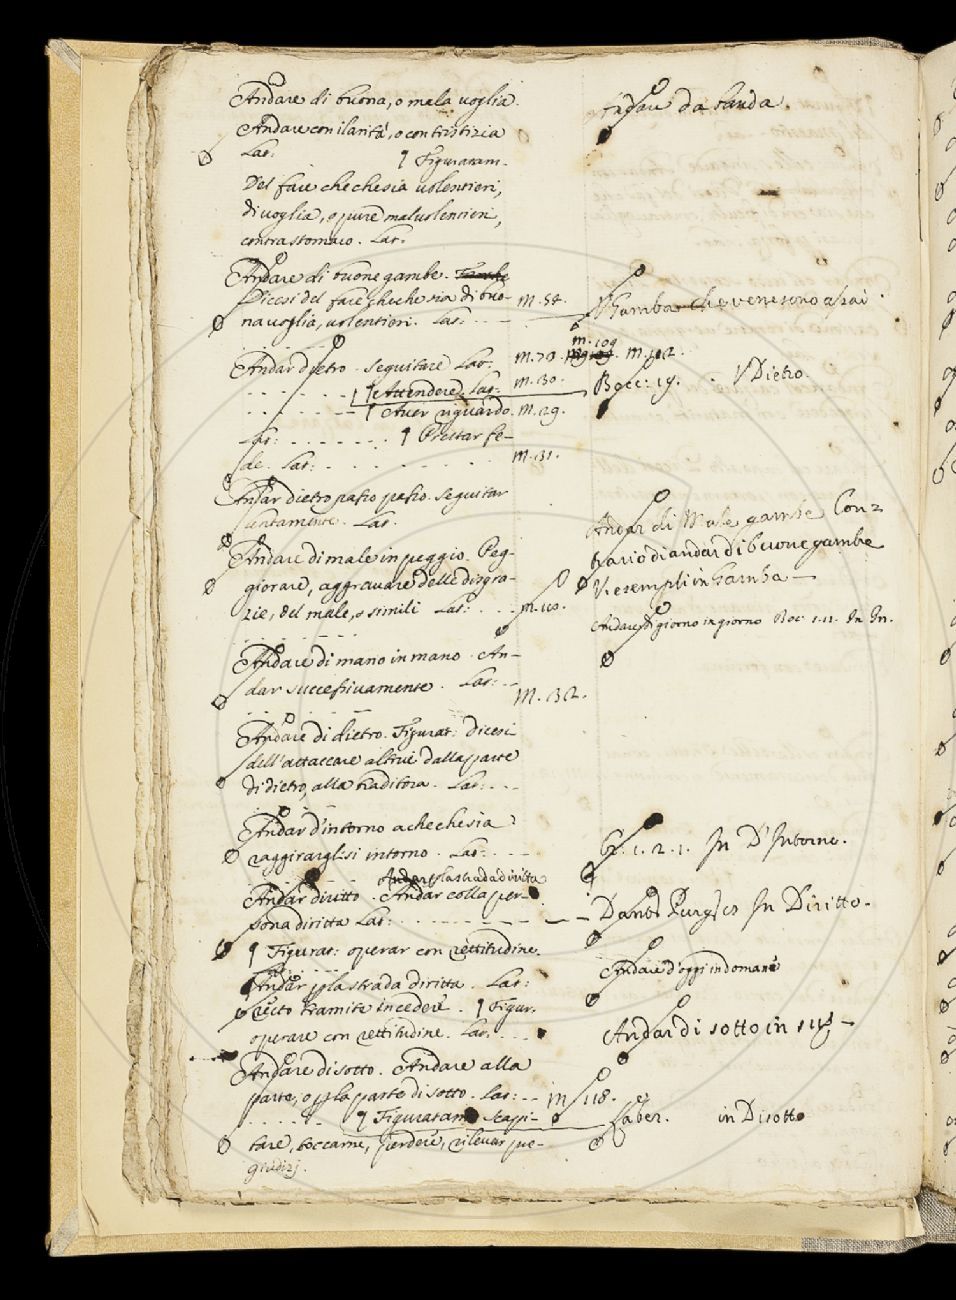 Andare di buona, o mala voglia.
Andare con ilarità, o con tristizia
Lat: ¶ Figuratam.
Del fare chechesia volentieri,
di voglia, o pure malvolentieri,
contrastomaco. Lat.
Andare di buone gambe.
Dicesi del fare chechesia di buo-
na voglia, volentieri. Lat: m. 54.
Andar dietro. Seguitare Lat. m. 79.
¶ Attendere Lat. m. 30.
¶ Aver riguardo. m. 29.
Lat: ¶ Prestar fe-
de. Lat: m. 31.
Andar dietro passo passo. Seguitar
lentamente. Lat.
Andare di male in peggio. Peg-
giorare, aggravare delle disgra-
zie, del male, o simili Lat: m. 110.
Andare di mano in mano. An-
dar successivamente. Lat: m. 32.
Andare di dietro. Figurat: dicesi
dell'attaccare altrui dalla parte
di dietro, alla traditora. Lat:
Andar d'intorno a chechesia
raggirarglisi intorno. Lat:
Andar p la strada diritta
Andar diritto. Andar colla per-
sona diritta Lat:
¶ Figurat: operar con rettitudine.
Andar p la strada diritta. Lat:
recto tramite incedere. ¶ Figur.
operare con rettitudine. Lat.
Andare di sotto. Andare alla
parte, o p la parte di sotto. Lat: m 118.
¶ Figuratam Scapi-
tare, toccarne, perdere, rilevar pre-
giudizj.
Andare da banda.
V Gamba che ve ne sono assai.
m. 109
m. 112.
Bocc: 19. V Dietro.
Andar di Male gambe Con=
trario di andar di buone gambe
V. esempli in Gamba —
Andare di giorno in giorno Boc: 1.11. In In.
1. 2. 1. In D'Intorno.
Dante Purg: In Diritto.
Andare d'oggi in domane
Andar di sotto in su —
Laber. in Disotto